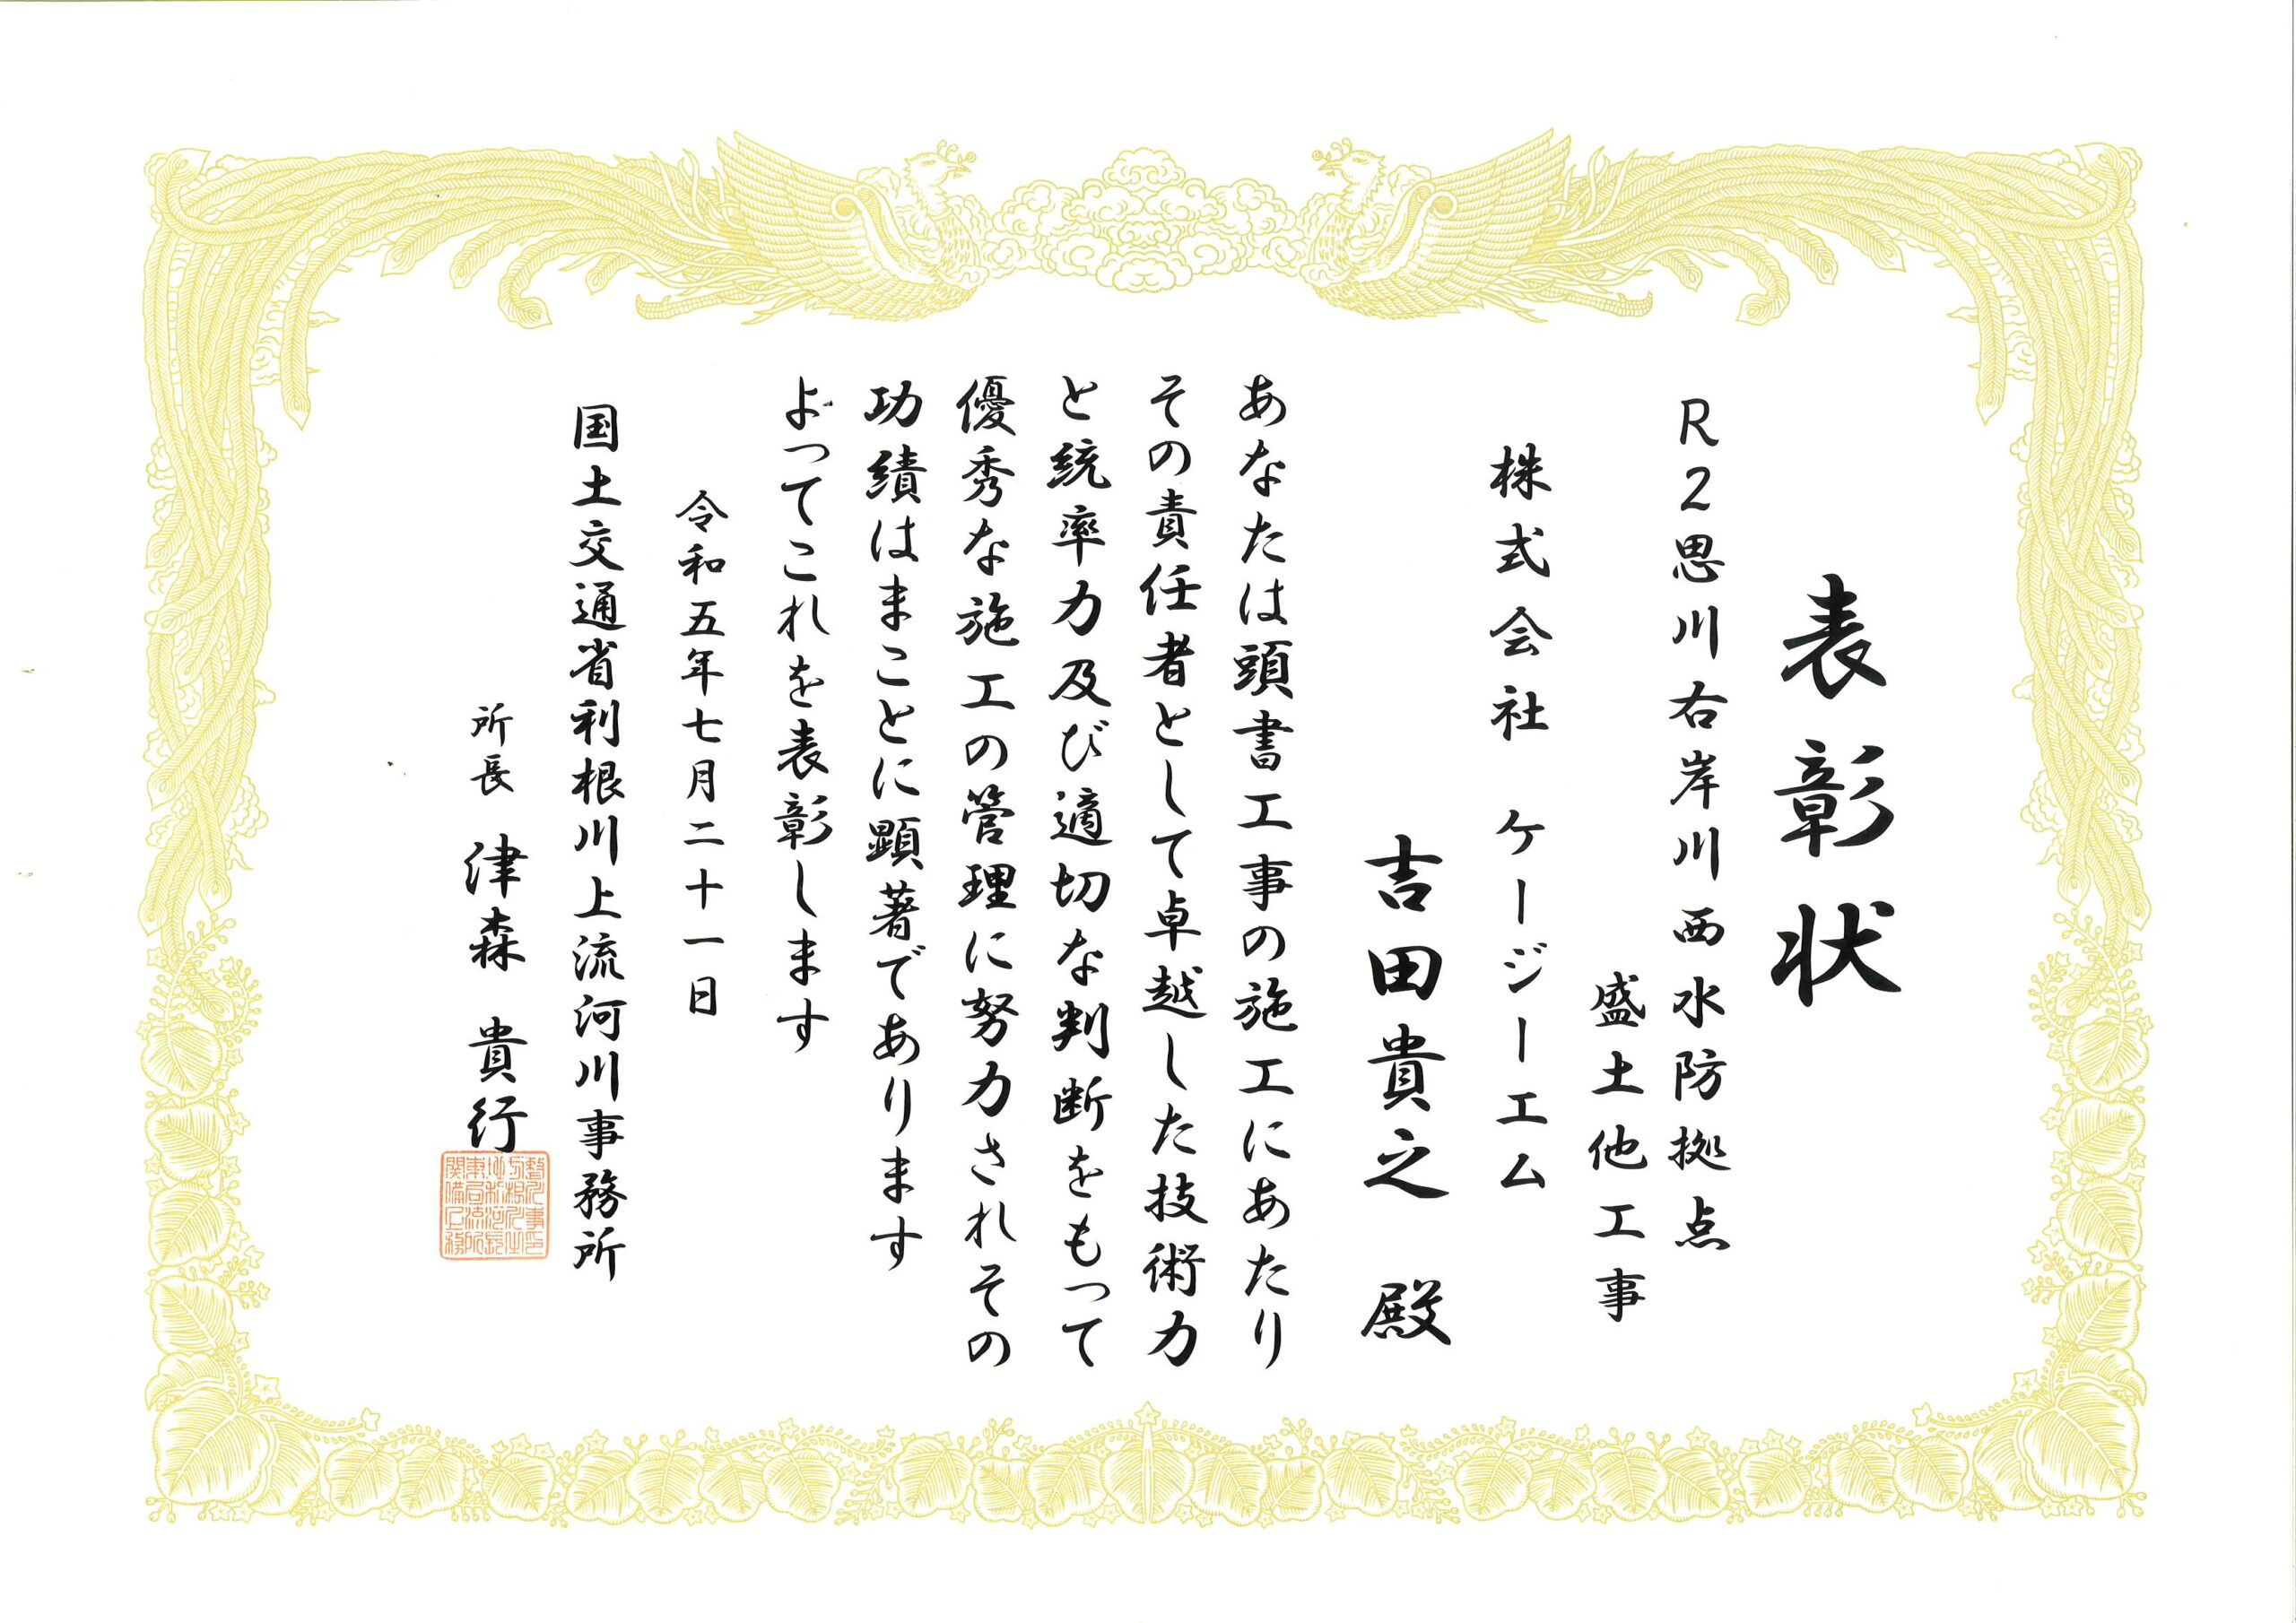 表彰状
R2思川右岸川西水防拠点
盛土他工事
株式会社 ケージーエム
吉田貴之 殿
あなたは頭書工事の施工にあたり
その責任者として卓越した技術力
と統率力及び適切な判断をもって
優秀な施工の管理に努力されその
功績はまことに顕著であります
よってこれを表彰します
令和五年七月二十一日
国土交通省利根川上流河川事務所
所長 津森 貴行